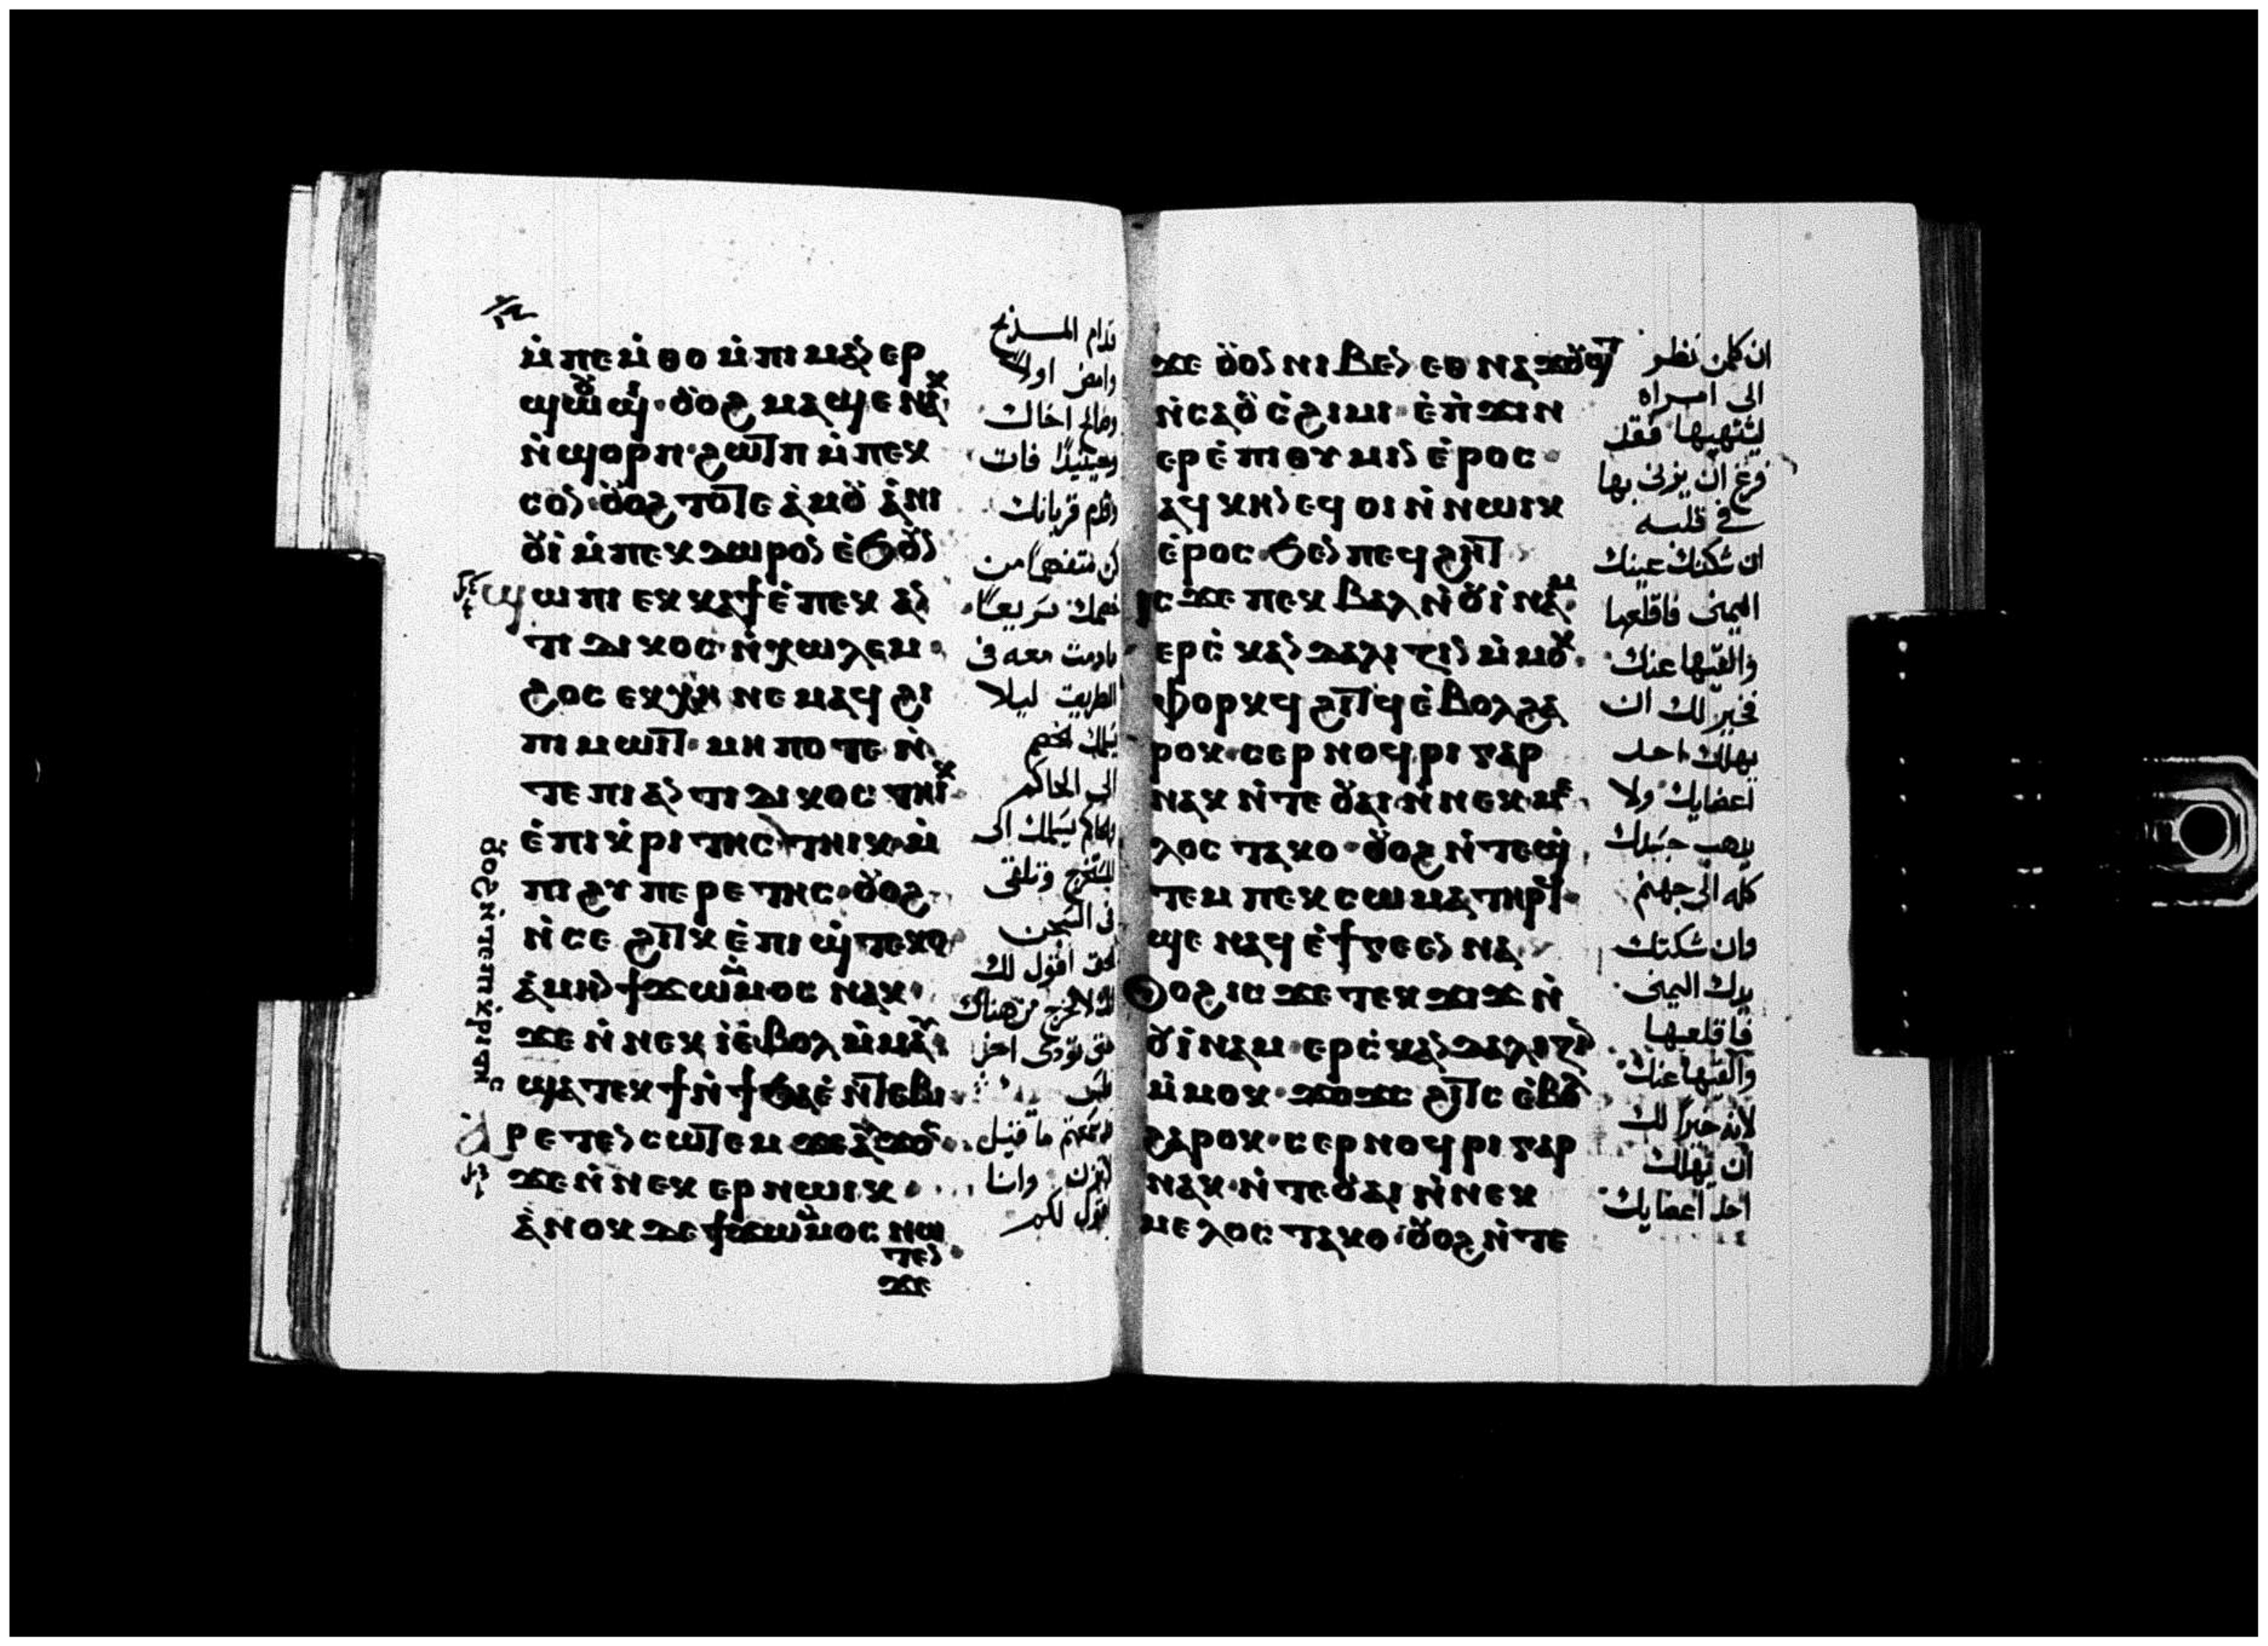 ⲙ̀ⲡⲉⲙ̀ⲑⲟ ⲙ̀ⲡⲓⲙⲁⲛⲉⲣ
ϣⲱⲟⲩϣⲓ· ⲟⲩⲟϩ ⲙⲁϣⲉⲛⲁⲕ
ⲛ̀ϣⲟⲣⲡ· ϩⲱⲧⲡ ⲙ̀ⲡⲉⲕ
ⲥⲟⲛ· ⲟⲩⲟϩ ⲧⲟⲧⲉ ⲁ̀ⲙⲟⲩ ⲁ̀ⲛⲓ
ⲟⲩⲓ̀ ⲙ̀ⲡⲉⲕⲇⲱⲣⲟⲛ ⲉ̀ϧⲟⲩⲛ
ϣⲱⲡⲓ ⲉⲕⲕⲁϯ ⲉ̀ⲡⲉⲕⲁⲛ
ⲧⲓⲇⲓⲕⲟⲥ ⲛ̀ⲭⲱⲗⲉⲙ·
ϩⲟⲥ ⲉⲕⲭⲏ ⲛⲉⲙⲁϥ ϩⲓ
ⲡⲓⲙⲱⲓⲧ· ⲙⲏⲡⲟⲧⲉ ⲛ̀
ⲧⲉⲡⲓⲁⲛⲧⲓⲇⲓⲕⲟⲥ ⲧⲏⲓⲕ
ⲉ̀ⲡⲓⲕ̀ⲣⲓⲧⲏⲥ ⲧⲏⲓⲕ ⲙ̀
ⲡⲓϩⲩⲡⲉⲣⲉⲧⲏⲥ· ⲟⲩⲟϩ
ⲛ̀ⲥⲉϩⲓⲧⲕ ⲉ̀ⲡⲓϣ̀ⲧⲉⲕⲟ
ⲁ̀ⲙⲏⲛ ϯϫⲱⲙ̀ⲙⲟⲥ ⲛⲁⲕ·
ϫⲉ ⲛ̀ⲛⲉⲕⲓ̀ ⲉ̀ⲃⲟⲗ ⲙ̀ⲙⲁⲩ
ϣⲁⲧⲉⲕϯ ⲛ̀ϯϧⲁⲉ̀ ⲛ̀ⲧⲉⲃⲓ·
ⲁⲣⲉⲧⲉⲛⲥⲱⲧⲉⲙ ϫⲉ ⲁⲩϫⲟⲥ·
ϫⲉ ⲛ̀ⲛⲉⲕⲉⲣⲛⲱⲓⲕ·
ⲁ̀ⲛⲟⲕ ⲇⲉ ϯϫⲱⲙ̀ⲙⲟⲥ ⲛⲱ
ⲧⲉⲛ·
ϫⲉ
ⲟⲩⲟϩ ⲛ̀ⲧⲉⲡⲓⲕ̀ⲣⲓⲧⲏⲥ
قدام المذبح
وامض اولا
وصالح اخاك
قدم قربانك
كن متفهما من
خصمك سريعا
الطريق ليلا
الى الحاكم
فى السجن
الحق اقول لك
انك لا تخرج من هناك
حتى تودى اخر
قد سمعتم ما قيل
لا تزن وانا
اقول لكم
ϫⲉ ⲟⲩⲟⲛ ⲛⲓⲃⲉⲛ ⲉⲑⲛⲁϫⲟⲩϣⲧ
ⲛ̀ⲥⲁ ⲟⲩⲥ̀ϩⲓⲙⲓ· ⲉ̀ⲡ̀ϫⲓⲛ
ⲉⲣⲉ̀ⲡⲓⲑⲩⲙⲓⲛ ⲉ̀ⲣⲟⲥ·
ⲁϥⲕⲏⲛ ⲉϥⲟⲓ ⲛ̀ⲛⲱⲓⲕ
ⲉ̀ⲣⲟⲥ· ϧⲉⲛ ⲡⲉϥϩⲏⲧ
ⲓⲥϫⲉ ⲡⲉⲕⲃⲁⲗ ⲛ̀ⲟⲩⲓ̀ⲛⲁⲙ
ⲉⲣⲥ̀ⲕⲁⲛⲇⲁⲗⲓⲍⲓⲛ ⲙ̀ⲙⲟⲕ·
ⲫⲟⲣⲕϥ ϩⲓⲧϥ ⲉ̀ⲃⲟⲗ ϩⲁ
ⲣⲟⲕ· ⲥⲉⲣⲛⲟϥⲣⲓ ⲅⲁⲣ
ⲛⲁⲕ ⲛ̀ⲧⲉ ⲟⲩⲁⲓ ⲛ̀ⲛⲉⲕⲙⲉ
ⲗⲟⲥ ⲧⲁⲕⲟ· ⲟⲩⲟϩ ⲛ̀ⲧⲉϣ̀
ⲧⲉⲙ ⲡⲉⲕⲥⲱⲙⲁ ⲧⲏⲣϥ·
ϣⲉ ⲛⲁϥ ⲉ̀ϯⲅⲉⲉⲛⲛⲁ
ⲟⲩⲟϩ ⲓⲥϫⲉ ⲧⲉⲕϫⲓϫ ⲛ̀
ⲟⲩⲓ̀ⲛⲁⲙ· ⲉⲣⲥ̀ⲕⲁⲛⲇⲁⲗⲓⲍⲓⲛ
ⲙ̀ⲙⲟⲕ· ϫⲟϫⲥ ϩⲓⲧⲥ ⲉ̀ⲃⲟⲗ
ϩⲁⲣⲟⲕ· ⲥⲉⲣⲛⲟϥⲣⲓ ⲅⲁⲣ
ⲛⲁⲕ· ⲛ̀ⲧⲉ ⲟⲩⲁⲓ ⲛ̀ⲛⲉⲕ
ⲙⲉⲗⲟⲥ ⲧⲁⲕⲟ· ⲟⲩⲟϩ ⲛ̀ⲧⲉ
ان كلمن نظر
الى امراه
ليشتهيها فقد
فرغ ان يزنى بها
فى قلبه
ان شكتك عينك
اليمنى فاقلعها
والقيها عنك
فخير لك ان
يهلك احد
اعضايك ولا
يذهب جسدك
كله الى جهنم
وان شكتك
يدك اليمنى
فاقلعها
والقيها عنك
لانه خيرا لك
ان يهلك
احد اعضايك